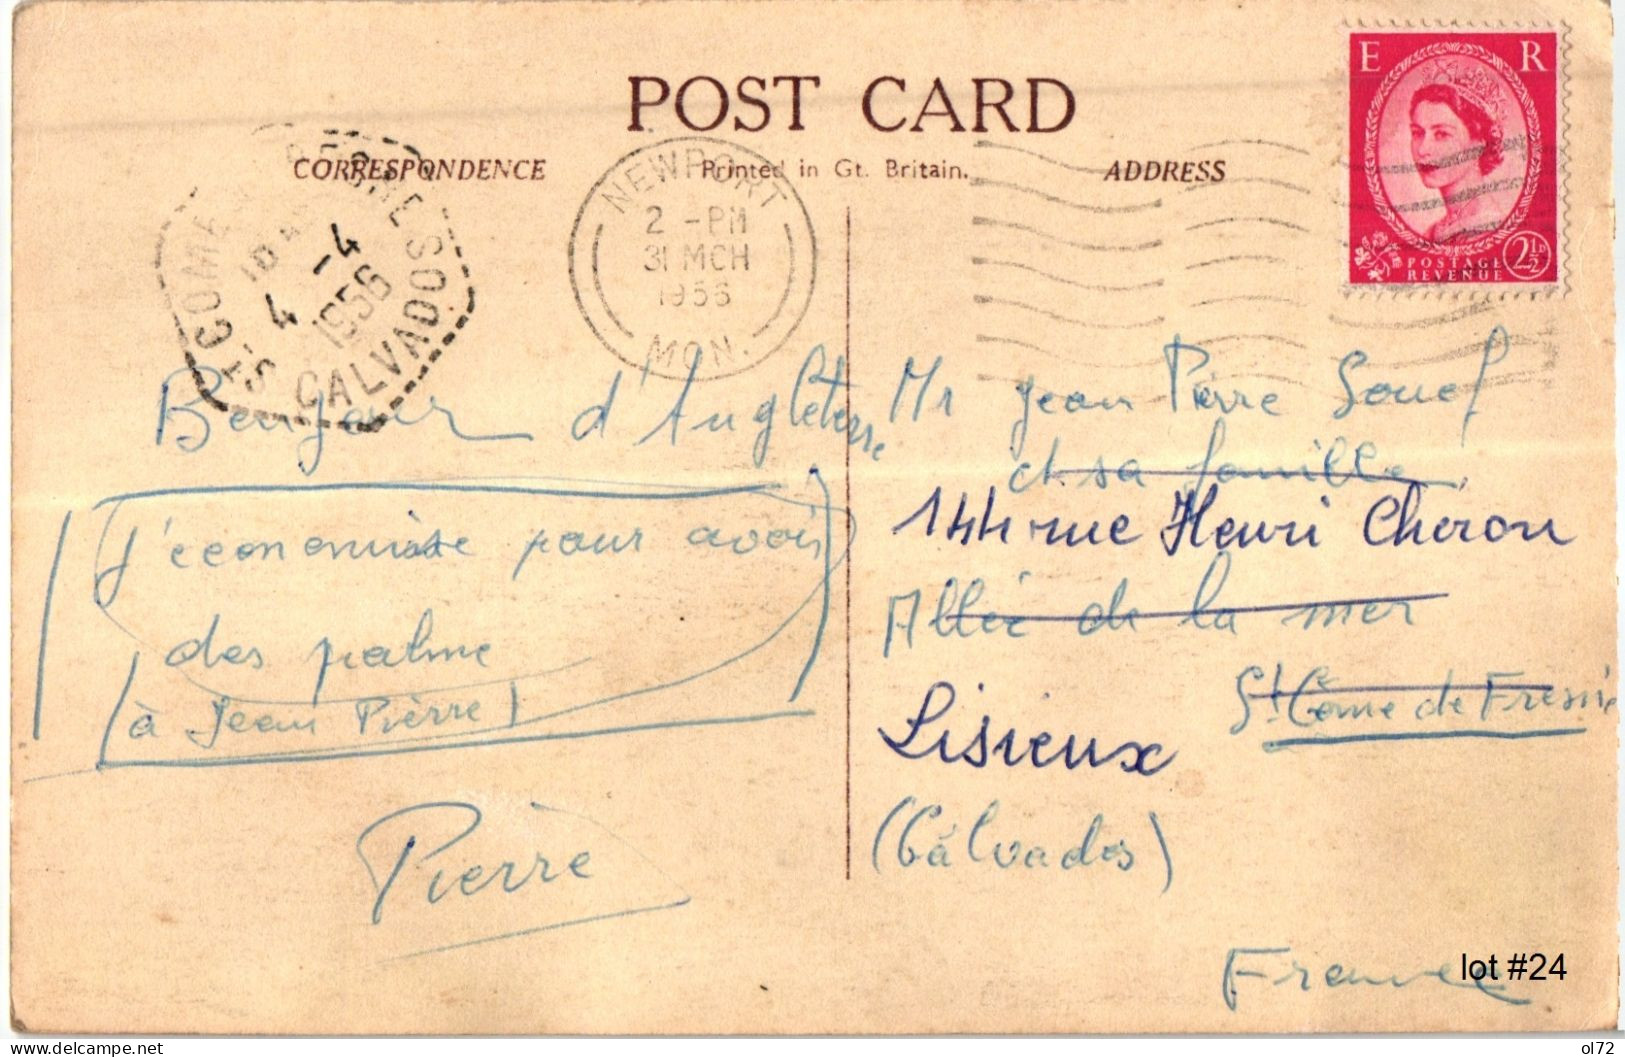 POST CARD
CORRESPONDENCE
Printed in Gt. Britain.
ADDRESS
E R
POSTAGE
REVENUE
2½D
NEWPORT
2 - PM
31 MCH
1956
MON.
ST COME DE FRESNE
18
4 - 4
1956
CALVADOS
Bonjour d'Angleterre
J'économise pour avoir
des palme
(à Jean Pièrre)
Pièrre
Mr Jean Pièrre Souef
et sa famille
144 rue Henri Cheron
Allée de la mer
St Côme de Fresné
Lisieux
(Calvados)
France
lot #24
delcampe.net
ol72